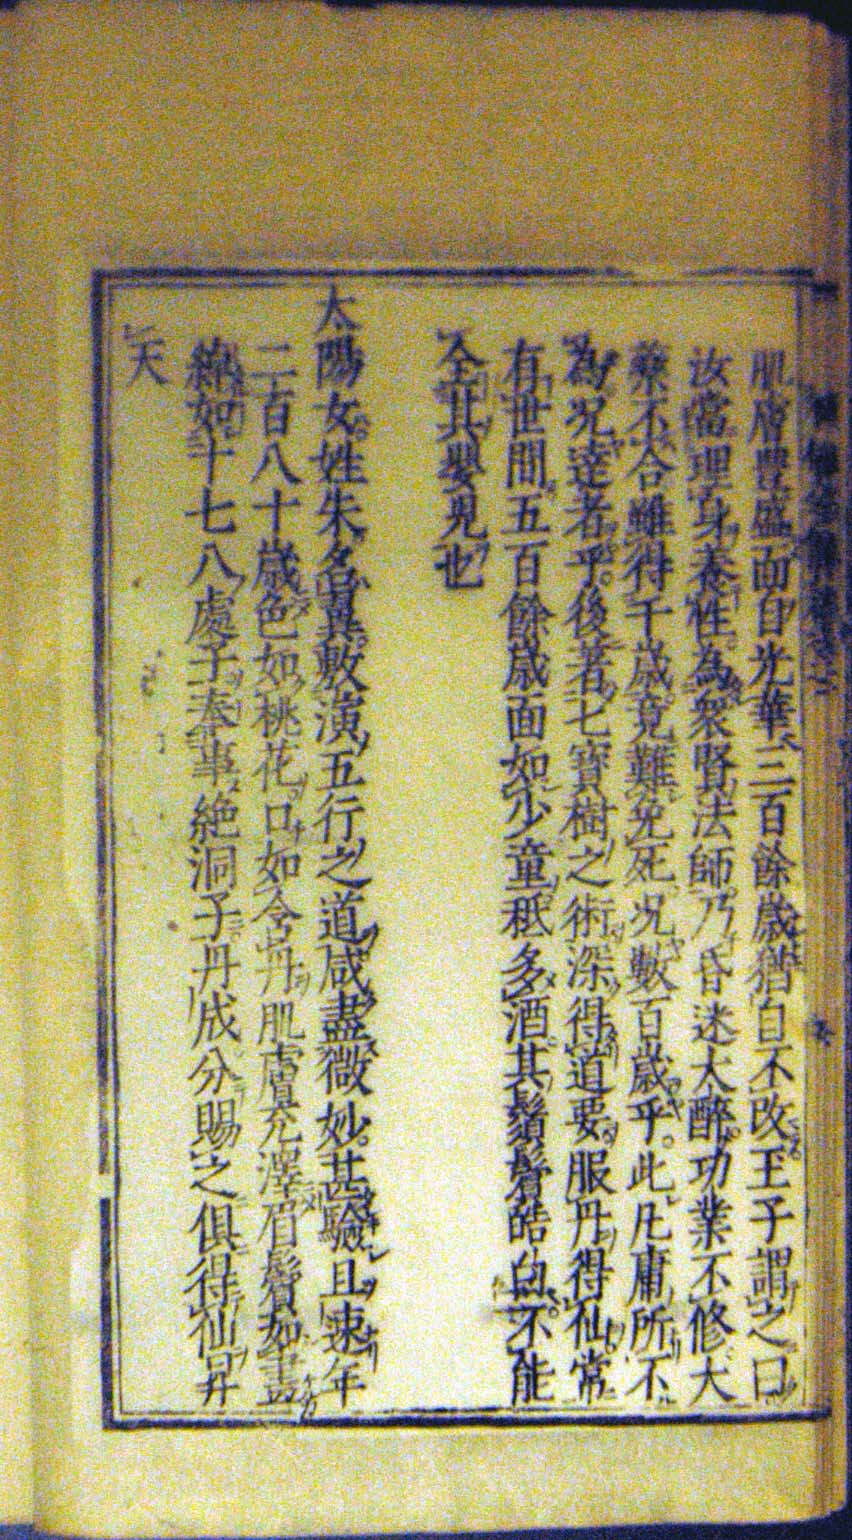 肌膚豐盛面目光華三百餘歲猶自不改玉子謂之曰
汝當理身養性為衆賢法師乃昏迷大醉功業不修大
藥不合雖得千歲竟難免死况數百歲乎此凡庸所不
為况達者乎後著七寶樹之術深得道要服丹得仙常
有世間五百餘歲面如少童秖多酒其鬚鬢皓白不能
全其嬰兒也
太陽女姓朱名翼敷演五行之道咸盡微妙甚驗且速年
二百八十歲色如桃花口如含丹肌膚充澤眉鬢如畫
綽如十七八處子奉事絶洞子丹成分賜之俱得仙昇
天